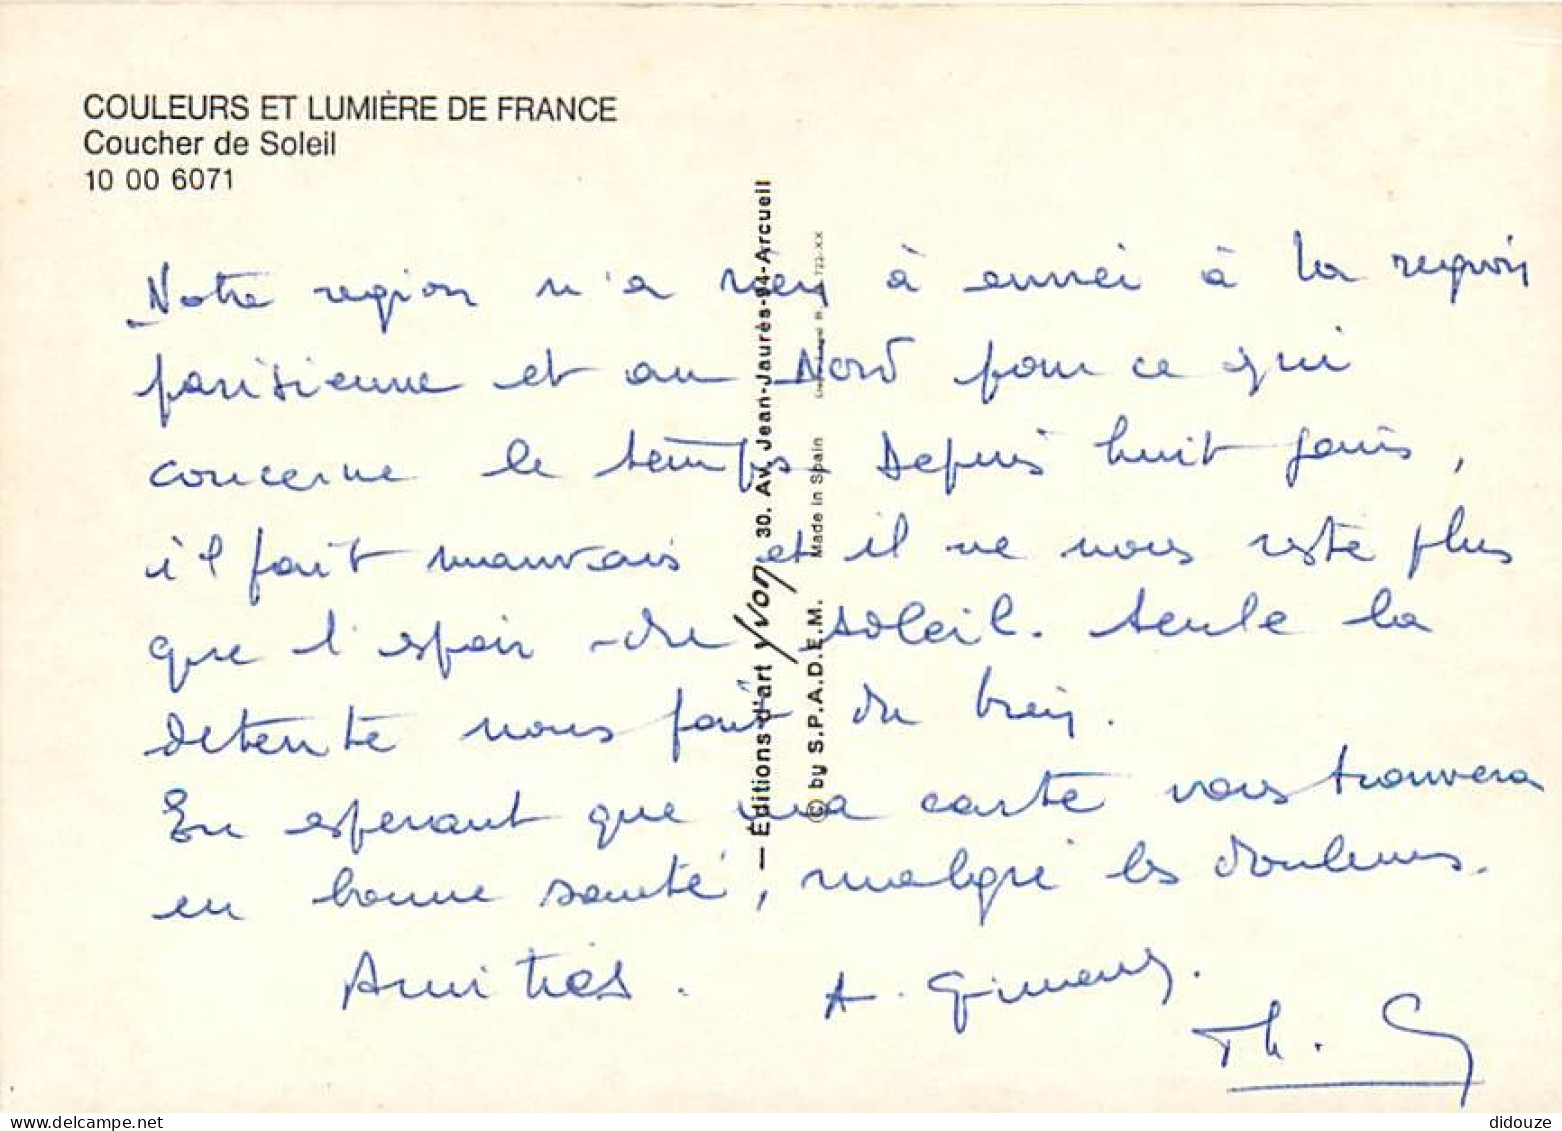 COULEURS ET LUMIÈRE DE FRANCE
Coucher de Soleil
10 00 6071
Notre region n'a rien à envier à la region
parisienne et au Nord pour ce qui
concerne le temps. Depuis huit jours,
il fait mauvais et il ne nous reste plus
que l'espoir du soleil. Seule la
detente nous fait du bien.
En esperant que ma carte vous trouvera
en bonne santé, malgré les douleurs.
Amitiés.
A.
Th. G
— Éditions d'art Yvon 30. Av. Jean-Jaurès-94-Arcueil
© by S.P.A.D.E.M. Made in Spain
delcampe.net
didouze